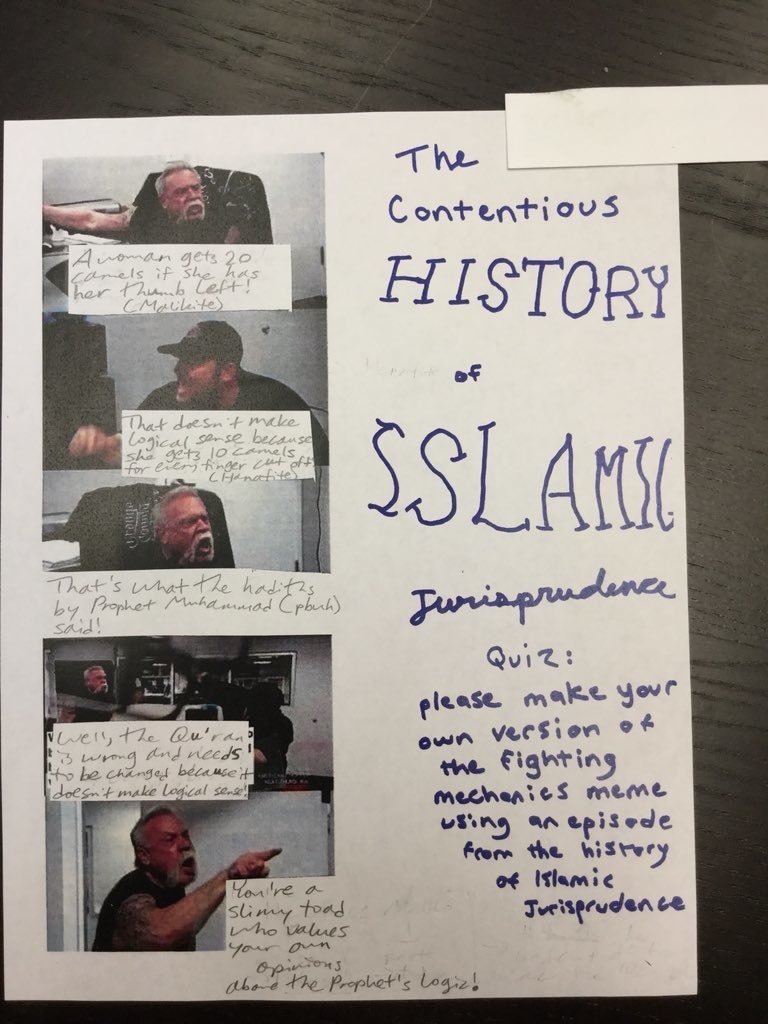 The
Contentious
HISTORY
of
ISLAMIC
Jurisprudence
Quiz:
please make your
own version of
the fighting
mechanics meme
using an episode
from the history
of Islamic
Jurisprudence
A woman gets 20
camels if she has
her thumb left!
(Malikite)
That doesn't make
logical sense because
she gets 10 camels
for every finger cut off!
(Hanafite)
That's what the hadiths
by Prophet Muhammad (pbuh)
said!
Well, the Qu'ran
is wrong and needs
to be changed because it
doesn't make logical sense!
You're a
slimy toad
who values
your own
opinions
above the Prophet's Logic!